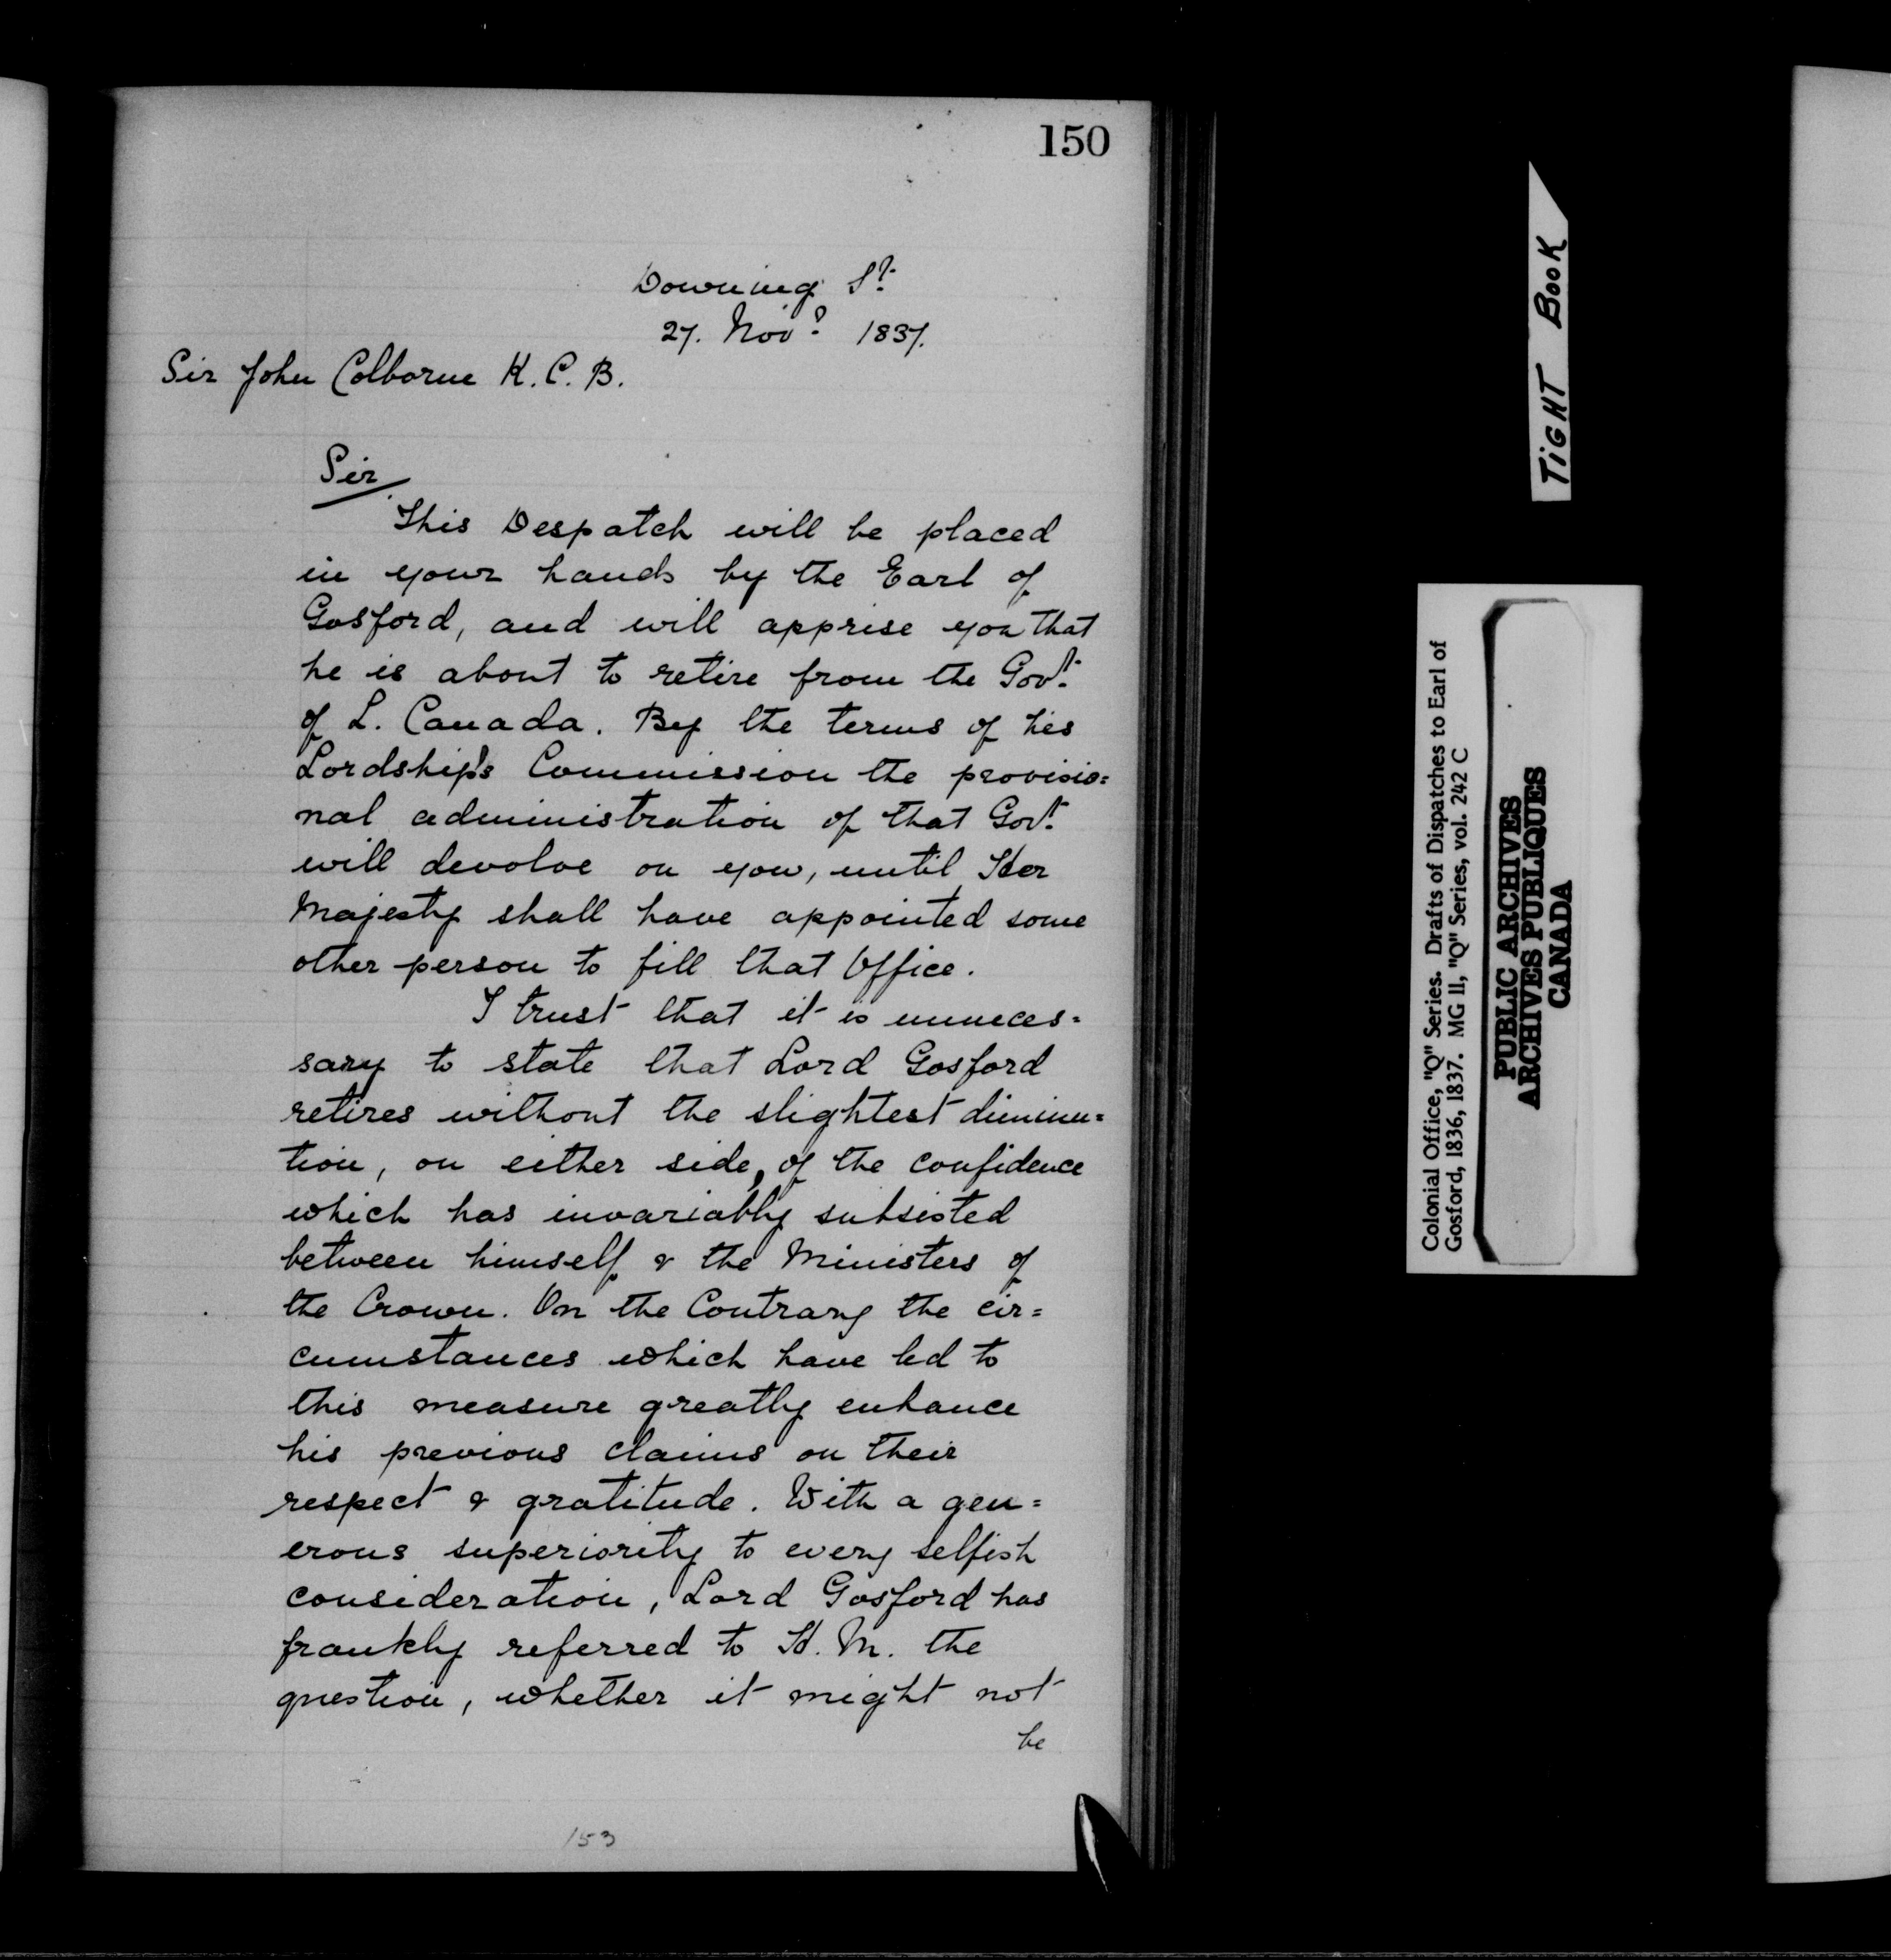 150
Downing St.
27. Novr. 1837.
Sir John Colborne K.C.B.
Sir
This Despatch will be placed
in your hands by the Earl of
Gosford, and will apprise you that
he is about to retire from the Govt.
of L. Canada. By the terms of his
Lordship's Commission the provisio=
nal administration of that Govt.
will devolve on you, until Her
Majesty shall have appointed some
other person to fill that Office.
I trust that it is unneces=
sary to state that Lord Gosford
retires without the slightest diminu=
tion, on either side, of the confidence
which has invariably subsisted
between himself & the Ministers of
the Crown. On the Contrary the cir=
cumstances which have led to
this measure greatly enhance
his previous claims on their
respect & gratitude. With a gen=
erous superiority to every selfish
consideration, Lord Gosford has
frankly referred to H.M. the
question, whether it might not
be
153
TIGHT BOOK
Colonial Office, "Q" Series. Drafts of Dispatches to Earl of
Gosford, 1836, 1837. MG 11, "Q" Series, vol. 242 C
PUBLIC ARCHIVES
ARCHIVES PUBLIQUES
CANADA